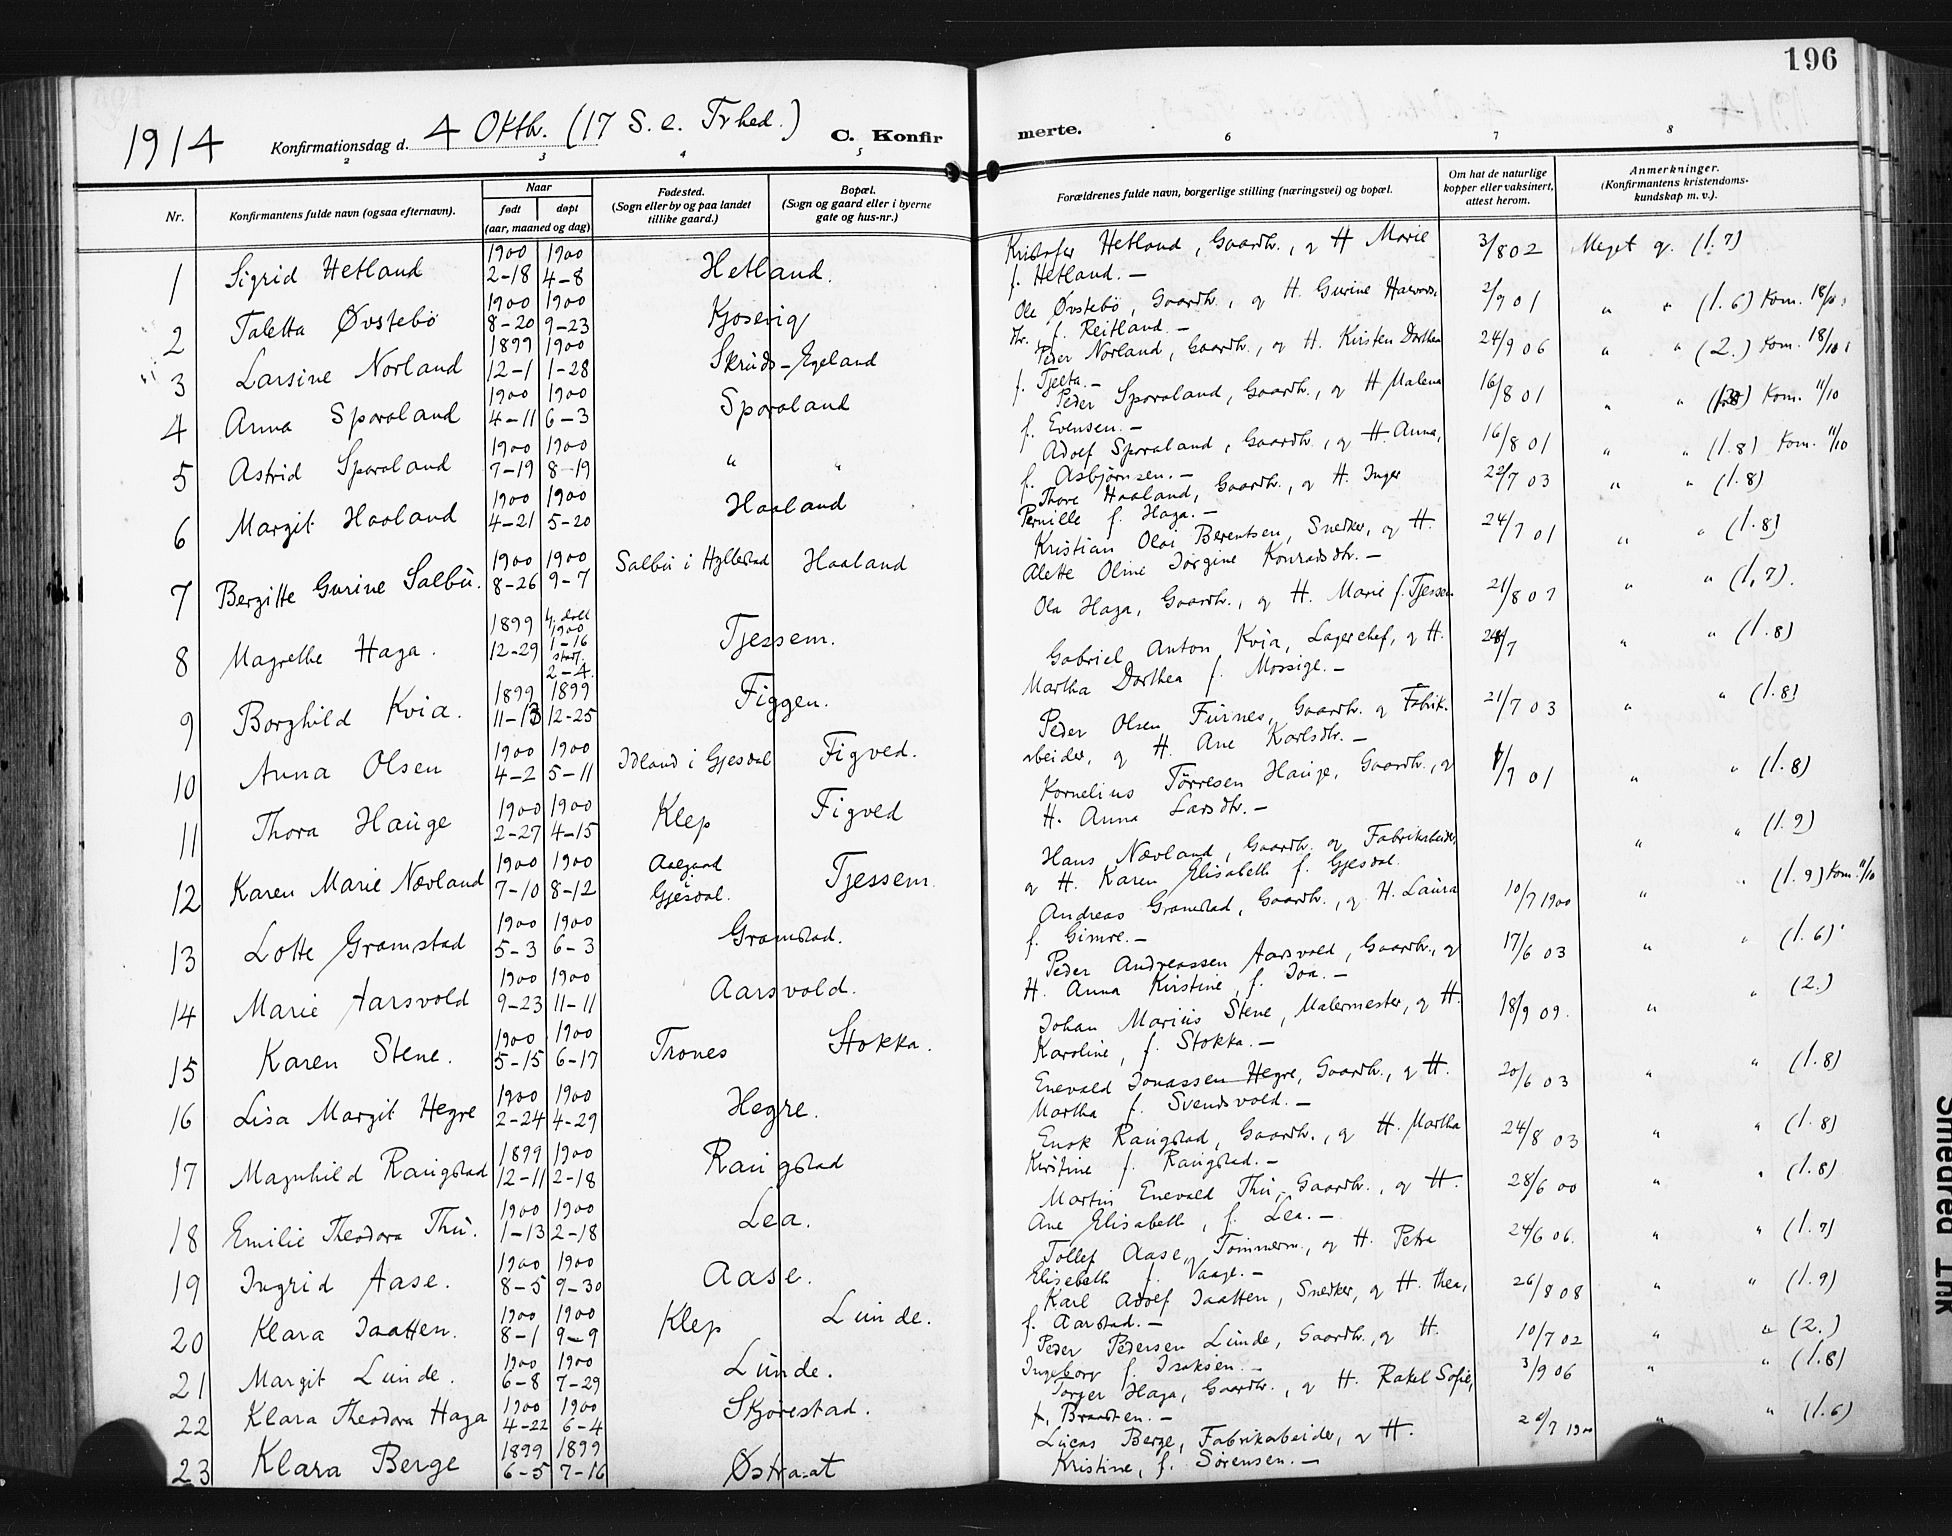 196
1914 Konfirmationsdag d. 4 Oktb. (17 S. e. Trhed.) C. Konfirmerte.
2 3 4 5 6 7 8
Nr.
Konfirmantens fulde navn (ogsaa efternavn).
Naar
født døpt
(aar, maaned og dag)
Fødested.
(Sogn eller by og paa landet
tillike gaard.)
Bopæl.
(Sogn og gaard eller i byerne
gate og hus-nr.)
Forældrenes fulde navn, borgerlige stilling (næringsvei) og bopæl.
Om hat de naturlige
kopper eller vaksinert,
attest herom.
Anmerkninger.
(Konfirmantens kristendoms-
kundskap m. v.).
1 Sigrid Hetland 1900 2-18 1900 4-8 Hetland. Kristofer Hetland, Gaardb., og H Marie
f. Hetland. — 3/8 02 Meget g. (1.7)
2 Taletta Øvstebö 1900 8-20 1900 9-23 Ole Øvstebö, Gaardb., og H. Gurine
f. Reitland. — 2/9 01 " " (1.6) Kom.
3 Larsine Norland 1899 12-1 1900 1-28 Skruds-Egeland Peder Norland, Gaardb., og H. Kirsten Dorthea
f. Tjelta. — 24/9 06 " " (2.) Kom. 18/10
4 Anna Sporaland 1900 4-11 1900 6-3 Sporaland Peder Sporaland, Gaardb., og H Malena
f. Evensen. — 16/8 01 " " Kom. 11/10
5 Astrid Sporaland 1900 7-19 1900 8-19 " " Adolf Sporaland, Gaardb., og H. Anna,
f. Asbjørnsen. — 16/8 01 " " (1.8) Kom. 11/10
6 Margit Haaland 1900 4-21 1900 5-20 Haaland Thore Haaland, Gaardb., og H. Inger
Pernille f. Haga. — 22/7 03 " " (1.8)
7 Bergitte Gurine Salbu. 1900 8-26 1900 9-7 Salbu i Hyllestad Haaland Kristian Olai Berentsen, Snedker, og H.
Alette Oline Jörgine Konradsdtr. — 24/7 01 " " (1.8)
8 Magrethe Haga. 1899 12-29 1900 1-16 2-4. Tjessem. Ola Haga, Gaardb., og H. Marie f. Tjessem 21/8 07 " " (1.7).
9 Borghild Kvia. 1899 11-13 1899 12-25 Figgen. Gabriel Anton Kvia, Lagerchef, og H.
Martha Dorthea f. Mossige. — " " (1.8)
10 Anna Olsen 1900 4-2 1900 5-11 Idland i Gjesdal Figved. Peder Olsen Furnes, Gaardb. og Fabrik-
arbeider, og H. Ane Karlsdtr. — 21/7 03 " " (1.8)
11 Thora Hauge 1900 2-27 1900 4-15 Klep Figved Kornelius Törresen Hauge, Gaardb., og
H. Anna Larsdtr. — /7 01 " " (1.8)
12 Karen Marie Nævland 1900 7-10 1900 8-12 Aalgaard Gjesdal. Tjessem Hans Nævland, Gaardb. og Fabrikarbeider,
og H. Karen Elisabeth f. Gjesdal. " " (1.9)
13 Lotte Gramstad 1900 5-3 1900 6-3 Gramstad. Andreas Gramstad, Gaardb., og H. Laura
f. Gimre. — 10/7 1900 " " (1.9) Kom. 11/10
14 Marie Aarsvold 1900 9-23 1900 11-11 Aarsvold. Peder Andreassen Aarsvold, Gaardb., og
H. Anna Kirstine, f. Joa. — 17/6 03 " " (1.6)
15 Karen Stene. 1900 5-15 1900 6-17 Trones Stokka. Johan Marius Stene, Malermester, og H.
Karoline, f. Stokka. — 18/9 09. " " (2.)
16 Lisa Margit Hegre 1900 2-24 1900 4-29 Hegre. Enevald Jonassen Hegre, Gaardb., og H.
Martha f. Svendsvold. — 20/6 03 " " (1.8)
17 Magnhild Raugstad 1899 12-11 1900 2-18 Raugstad Enok Raugstad, Gaardb., og H. Martha
Kirstine f. Raugstad. — 24/8 03 " " (1.8)
18 Emilie Theodora Thu. 1900 1-13 1900 2-18 Lea. Martin Enevald Thu, Gaardb., og H.
Ane Elisabeth, f. Lea. — 28/6 00 " " (1.8)
19 Ingrid Aase. 1900 8-5 1900 9-30 Aase. Tollef Aase, Tömmerm., og H. Petra
Elisebeth f. Vaage. — 24/6 06. " " (1.7)
20 Klara Jaatten. 1900 8-1 1900 9-9 Klep Lunde. Karl Adolf Jaatten, Snedker, og H. Thea,
f. Aarstad. — 26/8 08 " " (1.9)
21 Margit Lunde. 1900 6-8 1900 7-29 Lunde. Peder Pedersen Lunde, Gaardb., og H.
Ingeborg f. Isaksen. — 10/7 02 " " (2.)
22 Klara Theodora Haga 1900 4-22 1900 6-4 Skjørestad. Torger Haga, Gaardb., og H. Rakel Sofie,
f. Braadten. — 3/9 06 " " (1.8)
23 Klara Berge 1899 6-5 1899 7-16 Østraat Lucas Berge, Fabrikarbeider, og H.
Kristine, f. Sørensen. — 26/7 1900 " " (1.6)
Smeared Ink